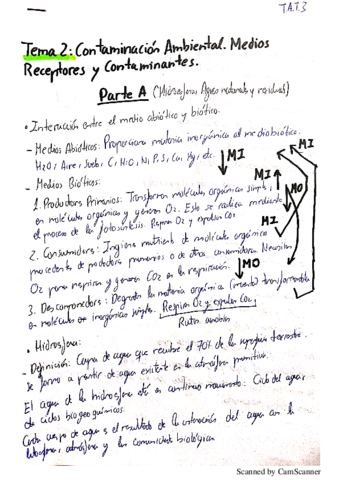 T.A.T.3
Tema 2: Contaminación Ambiental. Medios
Receptores y Contaminantes.
Parte A (Hidrosfera: Aguas naturales y residuales)
• Interacción entre el medio abiótico y biótico.
- Medios Abióticos: Proporciona materia inorgánica al medio biótico.
H2O, Aire, Suelo, C, H, O, N, P, S, Ca, Mg, etc. ↓MI
- Medios Bióticos: MI
1. Productores Primarios: Transforman moléculas inorgánicas simples MO
en moléculas orgánicas y generan O2. Esto se realiza mediante
el proceso de la fotosíntesis. Respiran O2 y expulsan CO2 MI
2. Consumidores: Ingieren nutrientes de moléculas orgánicas
procedentes de productores primarios o de otros consumidores. Necesitan
O2 para respirar y generan CO2 en la respiración. ↓MO
3. Descomponedores: Degradan la materia orgánica (muerta) transformándola
en moléculas inorgánicas simples. Respiran O2 y expulsan CO2.
• Hidrosfera:
- Definición: Capa de agua que recubre el 70% de la superficie terrestre.
Se formó a partir de agua existente en la atmósfera primitiva.
El agua de la hidrosfera está en continuo movimiento: Ciclo del agua,
de ciclos biogeoquímicos.
Cada cuerpo de agua es el resultado de la interacción del agua con la
litosfera, atmósfera y las comunidades biológicas.
Scanned by CamScanner